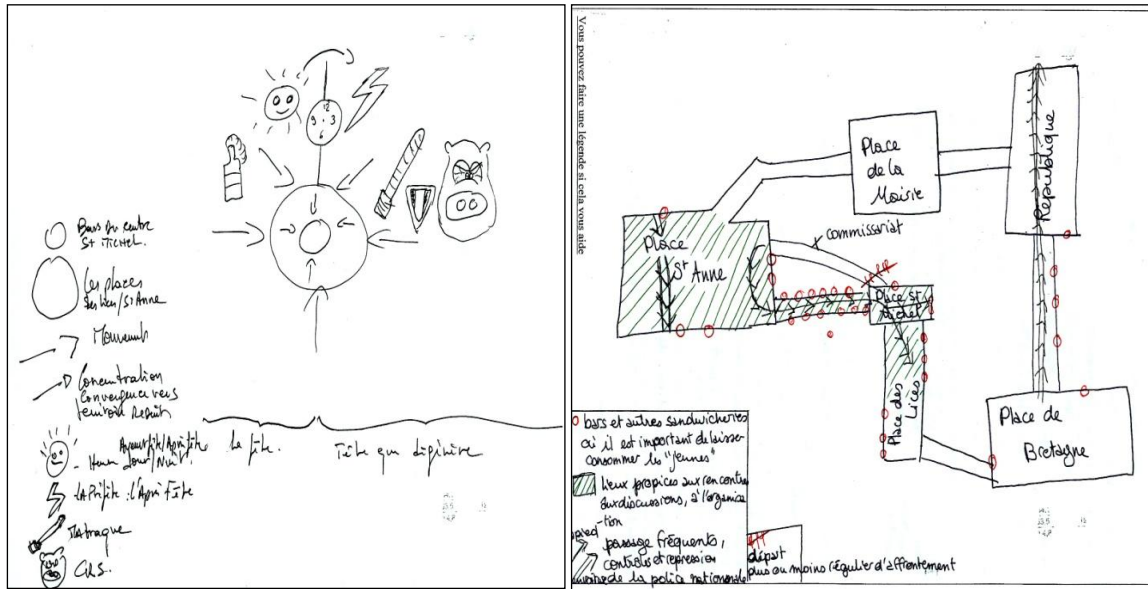 12
9 3
6
Bars du centre
St Michel.
Les places
des Lices/St Anne
Mouvement
Concentration
Convergence vers
Avant fête/Après fête
- Heures Jour/Nuit
La fête.
Fête qui dégénère
: l'Après Fête
Matraque
CRS.
Vous pouvez faire une légende si cela vous aide
Place
de la
Mairie
République
commissariat
Place
St Anne
Place St
Michel
Place des
Lices
Place de
Bretagne
bars et autres sandwicheries
où il est important de laisser
consommer les "jeunes"
lieux propices aux rencontres
aux discussions, à l'organisa
-tion
passage fréquents,
controles et repression
de la police nationale
départ
plus ou moins régulier d'affrontement